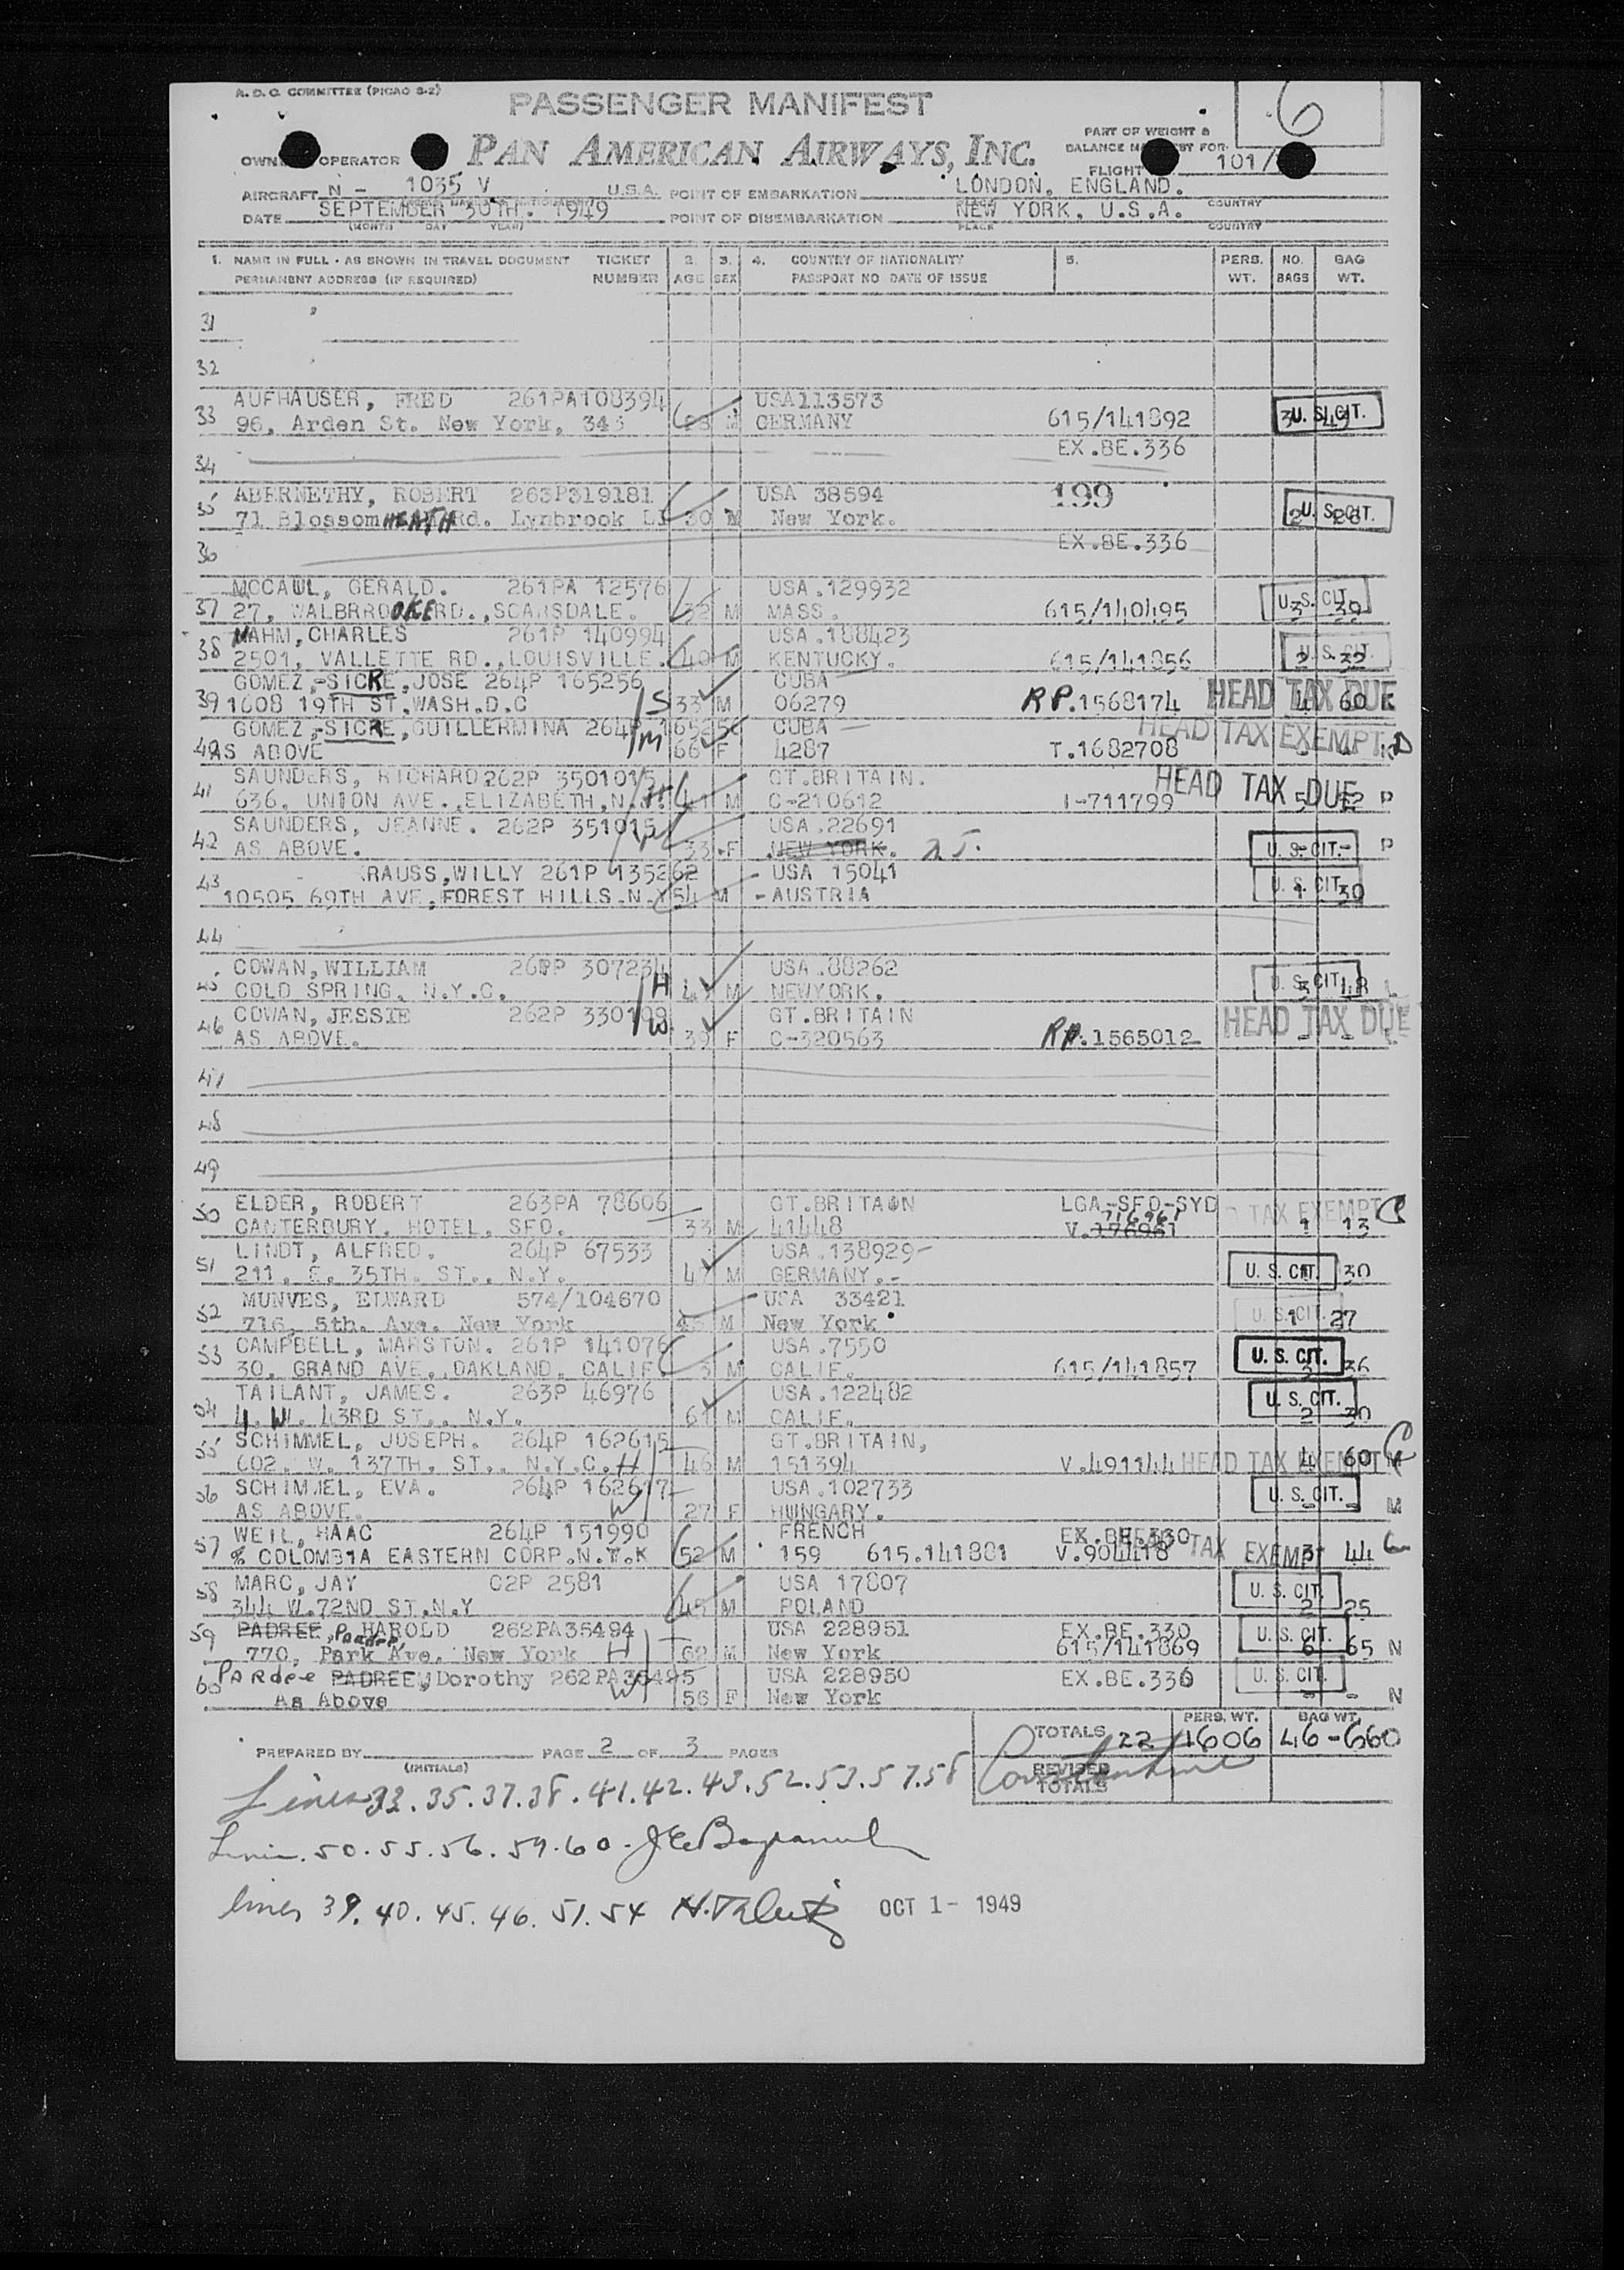 A. D. C. COMMITTEE (PICAO S-2)
6
PASSENGER MANIFEST
PART OF WEIGHT &
OPERATOR PAN AMERICAN AIRWAYS, INC.
FLIGHT 101/
AIRCRAFT N - 1035 V U.S.A. POINT OF EMBARKATION LONDON, ENGLAND.
COUNTRY
DATE SEPTEMBER 30TH. 1949 POINT OF DISEMBARKATION NEW YORK, U.S.A.
(MONTH DAY YEAR) PLACE COUNTRY
1. NAME IN FULL - AS SHOWN IN TRAVEL DOCUMENT TICKET 2. 3. 4. COUNTRY OF NATIONALITY 5. PERS. NO. BAG
PERMANENT ADDRESS (IF REQUIRED) NUMBER AGE SEX PASSPORT NO DATE OF ISSUE WT. BAGS WT.
31
32
AUFHAUSER, FRED 261PA108394 USA113573
33 96, Arden St. New York, M GERMANY 615/141892 U. S. CIT.
34 EX.BE.336
ABERNETHY, ROBERT 263P319181 USA 38594 199
35 71 Blossom HEATH Rd. Lynbrook LI 30 M New York. U. S. CIT.
36 EX.BE.336
MCCAUL, GERALD. 261PA 12576 USA.129932
37 27, WALBRROOKE RD.,SCARSDALE. 32 M MASS. 615/140495 U. S. CIT. 3 39
NAHM, CHARLES 261P 140994 USA.188423
38 2501, VALLETTE RD.,LOUISVILLE. 40 M KENTUCKY. 615/141856 U. S. CIT. 2 32
GOMEZ,-SICRE,JOSE 264P 165256 CUBA
39 1608 19TH ST.WASH.D.C S 33 M 06279 RP.1568174 HEAD TAX DUE 4 60 K
GOMEZ,-SICRE,GUILLERMINA 264P 165256 CUBA
40 AS ABOVE M 66 F 4287 T.1682708 HEAD TAX EXEMPT
SAUNDERS, RICHARD 262P 3501015 GT.BRITAIN.
41 636, UNION AVE.,ELIZABETH,N.J. H M C-210612 I-711799 HEAD TAX DUE 5 P
SAUNDERS, JEANNE. 262P 351015 USA.22691
42 AS ABOVE. W 33 F NEW YORK. U. S. CIT. P
RAUSS,WILLY 261P 135262 USA 15041
43 10505 69TH AVE,FOREST HILLS.N.Y 54 M - AUSTRIA U. S. CIT. 1 30
44
COWAN,WILLIAM 307234 USA.88262
45 COLD SPRING, N.Y.C. H M NEWYORK. U. S. CIT.
COWAN, JESSIE 262P 330199 GT.BRITAIN
46 AS ABOVE. W. 39 F C-320563 RP.1565012 HEAD TAX DUE
47
48
49
ELDER, ROBERT 263PA 78606 GT.BRITAIN LGA-SFO-SYD TAX EXEMPT
50 CANTERBURY, HOTEL, SFO. 33 M 41448 V.176961 716961 1 13
LINDT, ALFRED. 264P 67533 USA.138929
51 211, E. 35TH. ST., N.Y. 47 M GERMANY. U. S. CIT. 30
MUNVES, EDWARD 574/104670 USA 33421
52 716, 5th. Ave. New York 45 M New York U. S. CIT. 1 27
CAMPBELL, MARSTON. 261P 141076 USA.7550
53 30, GRAND AVE.,OAKLAND, CALIF M CALIF. 615/141857 U. S. CIT. 36
TAILANT, JAMES. 263P 46976 USA.122482
54 4. W. 43RD ST., N.Y. 61 M CALIF. U. S. CIT. 2 30
SCHIMMEL, JOSEPH. 264P 162615 GT.BRITAIN,
55 602. W. 137TH. ST., N.Y.C. H 46 M 151394 V.491144 HEAD TAX EXEMPT 4 60
SCHIMMEL, EVA. 264P 162617 USA.102733
56 AS ABOVE. W 27 F HUNGARY. U. S. CIT. - - M
WEIL, HAAC 264P 151990 FRENCH EX.BE.330
57 % COLOMBIA EASTERN CORP.N.Y.K 52 M 159 615.141881 V.904418 HEAD TAX EXEMPT 3 44
MARC, JAY C2P 2581 USA 17807
58 344 W.72ND ST.N.Y 45 M POLAND U. S. CIT. 2 25
59 PADREE, Pardee, HAROLD 262PA35494 USA 228951 EX.BE.330
770, Park Ave. New York H 62 M New York 615/141869 U. S. CIT. 6 65 N
60 Pardee PADREE, Dorothy 262PA35495 USA 228950 EX.BE.336
As Above W 56 F New York U. S. CIT. - - N
PERS. WT. BAG WT.
TOTALS 22 1606 46-660
PREPARED BY PAGE 2 OF 3 PAGES
(INITIALS) REVISED TOTALS
Lines 33. 35. 37. 38. 41. 42. 43. 52. 53. 57. 58
50. 55. 56. 59. 60
lines 39. 40. 45. 46. 51. 54 OCT 1- 1949